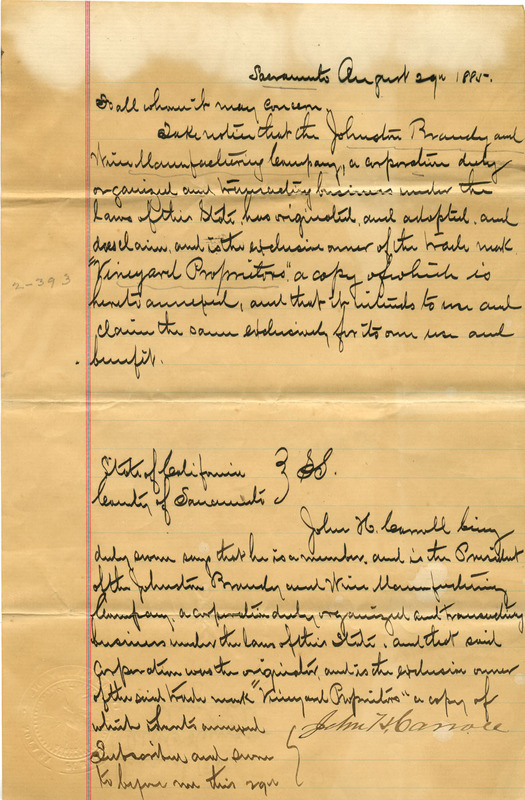 Sacramento August 29th 1885.
To all whom it may Concern,
Take notice that the Johnston Brandy and
Wine Manufacturing Company, a corporation duly
organized and transacting business under the
Laws of this State, has originated, and adopted, and
does claim, and is the exclusive owner of the trade mark
"Vineyard Propritors" a copy of which is
hereto annexed, and that it intends to use and
claim the same exclusively for its own use and
benefit.
2-393
State of California } SS.
County of Sacramento
John H. Carroll being
duly sworn says that he is a member, and is the President
of the Johnston Brandy and Wine Manufacturing
Company, a corporation duly organized and transacting
business under the laws of this State, and that said
Corporation was the originator, and is the exclusive owner
of the said trade mark "Vineyard Propritors" a copy of
which is hereto annexed
John H. Carroll
Subscribed and sworn
to before me this 29th